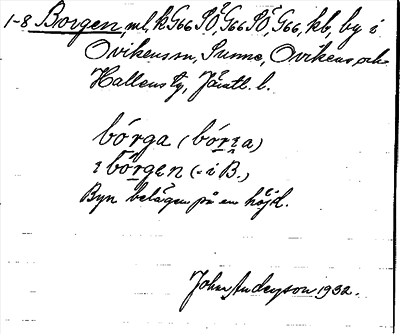 1-8 Borgen, ml, kG66SÖ, G66SÖ, G66, kb, by i
Ovikens sn, Sunne, Ovikens och
Hallens tg, Jämtl. l.
bórga (bórɪa)
ɪ bórgen (= i B.)
Byn belägen på en höjd.
Johan Anderson 1932.